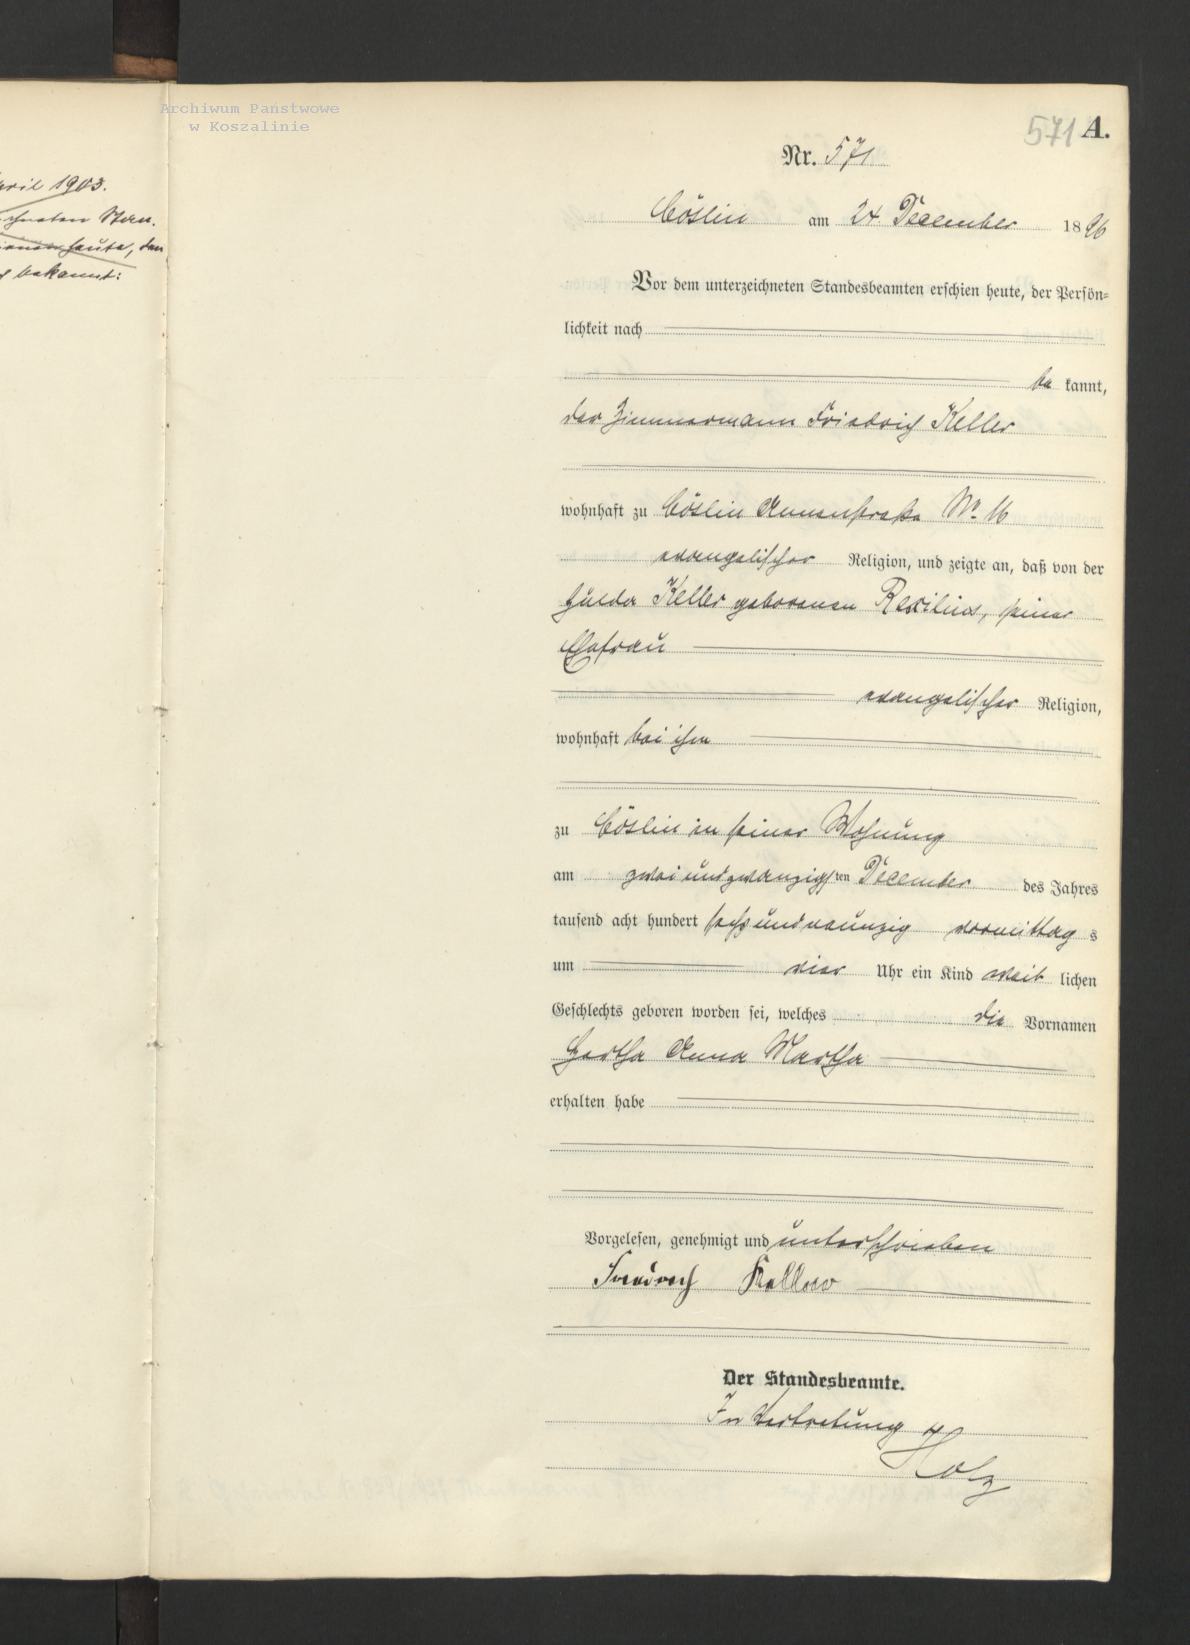 Archiwum Państwowe
w Koszalinie
April 1903.
bekannt:
571 A.
Nr. 571
Cöslin am 24 December 1896
Vor dem unterzeichneten Standesbeamten erschien heute, der Persön=
lichkeit nach
be kannt,
der Zimmermann Friedrich Keller
wohnhaft zu Cöslin Annenstraße No 16
evangelischer Religion, und zeigte an, daß von der
Hulda Keller geborenen Rexilius, seiner
Ehefrau
evangelischer Religion,
wohnhaft bei ihm
zu Cöslin in seiner Wohnung
am zweiundzwanzigsten December des Jahres
tausend acht hundert sechsundneunzig vormittag s
um vier Uhr ein Kind weib lichen
Geschlechts geboren worden sei, welches die Vornamen
Hertha Anna Martha
erhalten habe
Vorgelesen, genehmigt und unterschrieben
Friedrich Keller
Der Standesbeamte.
In Vertretung
Holz